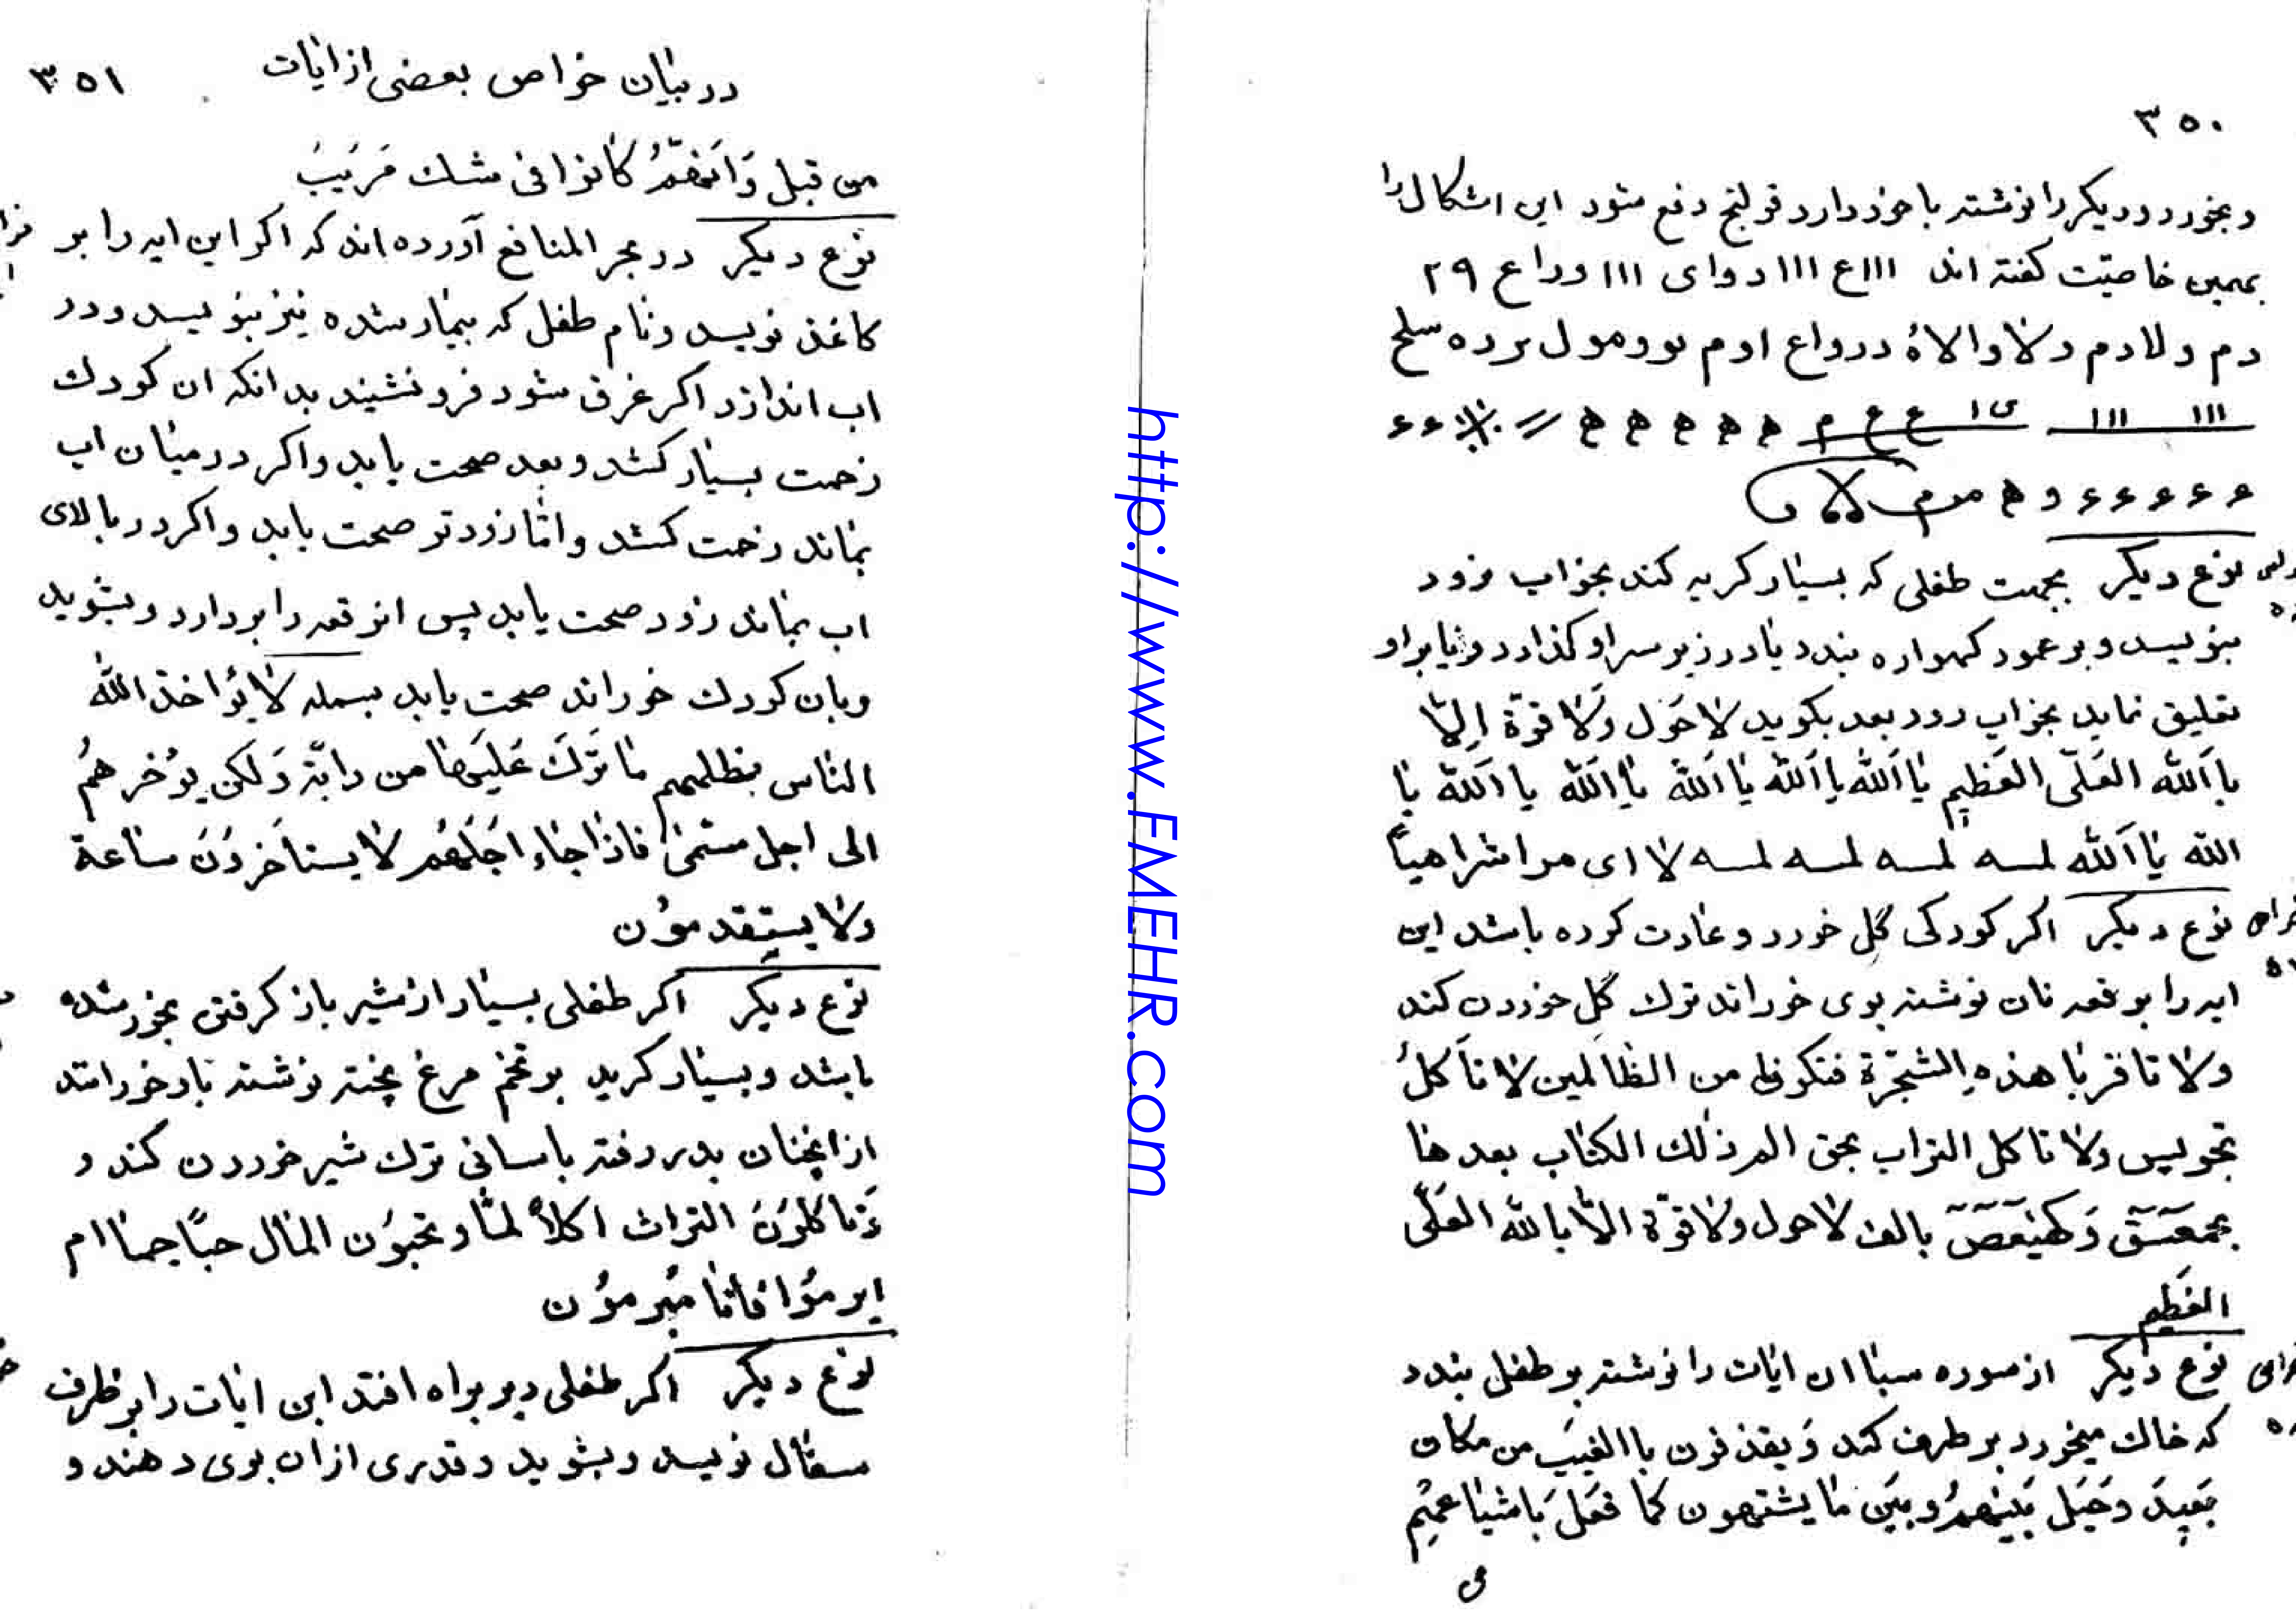 ۳۵۰
و بخورد و دیکر را نوشته با خود دارد قولنج دفع شود این اشکال را
بهمین خاصیّت کفته اند ااا ع ااا د وای ااا وداع ۲۹
دم ولادم ولا والاهٔ درواع ادم
ااا ااا ع ع م ه ه ه ه ه
ء ء ء ء ء و ه
نوع دیکر بجهت طفلی که بسیٰار کریه کند بخواب رود
بنویسد و بر عمود کهواره بندد یٰا در زیر سر او کذارد و یٰا بر او
تعلیق نماید بخواب رود بعد بکوید لاٰ حَوَل وَلاٰ قوّة اِلاّٰ
باَللّٰه العَلّی العَظیِم یٰا اَللّٰه یا اَللّٰه یٰا اَللّٰه یٰا اَللّٰه یا اَللّٰه یٰا
اللّه یٰا اَللّٰه لمسه لمسه لمسه لمسه لاٰ ای مراشراهیاً
نوع دیکر اکر کودکی گل خورد و عٰادت کرده باشد این
ایه را بر لقمه نان نوشته بوی خوراند ترك گل خوردن کند
ولاٰ تاقربٰا هذهِ الشَجَرَة فتکونٰا من الظٰالمین لاٰ تأکلُ
ولاٰ تاکل التراب بحق الم ذٰلك الکتٰاب بعد هٰا
بحمعسق وَ کهیٰعص بالف لاٰ حول ولاٰ قوّة الاّٰ بالله العَلّی
العَظیِم
نوع دیکر از سوره سبٰا ان ایٰات را نوشته بر طفل بندد
که خاك میخورد بر طرف کند وَ یقذفون باالغیَب من مکان
بَعیِدَ وحَیَل بَینٰهمُ وبیَن مٰا یشتهون کمٰا فعَلَ بَاشیٰاعهِم
در بیٰان خواص بعضی از ایٰات ۳۵۱
من قبل وَاَنهّمُ کٰانوا فی شك مَریَبَ
نوع دیکر در بحر المنافع آورده اند که اکر این ایه را بر
کاغذ نویسد و نٰام طفل که بیمٰار شده نیز بنویسد و در
اب اندازد اکر غرق شود فرو نشیند بدانکه ان کودك
زحمت بسیٰار کشد و بعد صحت یابد و اکر در میٰان اب
بمٰاند زحمت کشد و امّٰا زودتر صحت یابد و اکر در بالای
اب بمٰاند زود صحت یابد پس ان رقعه را بر دارد و بشوید
و بان کودك خوراند صحت یابد بسمله لاٰ یؤاخذ اللّٰه
النٰاس بظلمهم مٰا تَرَكَ عَلَیَهٰا من دابّة وَلکن یوُخرهمُ
الی اجل مسّمیٰ فاذٰا جٰاء اجَلَهُم لاٰ یستٰاَخروُنَ سٰاعة
ولاٰ یستِقدموُن
نوع دیکر اکر طفلی بسیٰار از شیر باز کرفتن بخور شده
باشد و بسیٰار کرید بر تخم مرغ پخته نوشته باو خورانند
ازانچنان بدر رفته باسانی ترك شیر خوردن کند و
وَتٰاکلوُنَ التراث اکلاً لمّٰا و تحبوُن المٰال حبّاً جمٰا ام
ابرموُا فانٰا مُبرموُن
نوع دیکر اکر طفلی دیر براه افتد این ایٰات را بر ظرف
سفٰال نویسد و بشوید و قدری از ان بوی دهند و
http://www.FMEHR.com